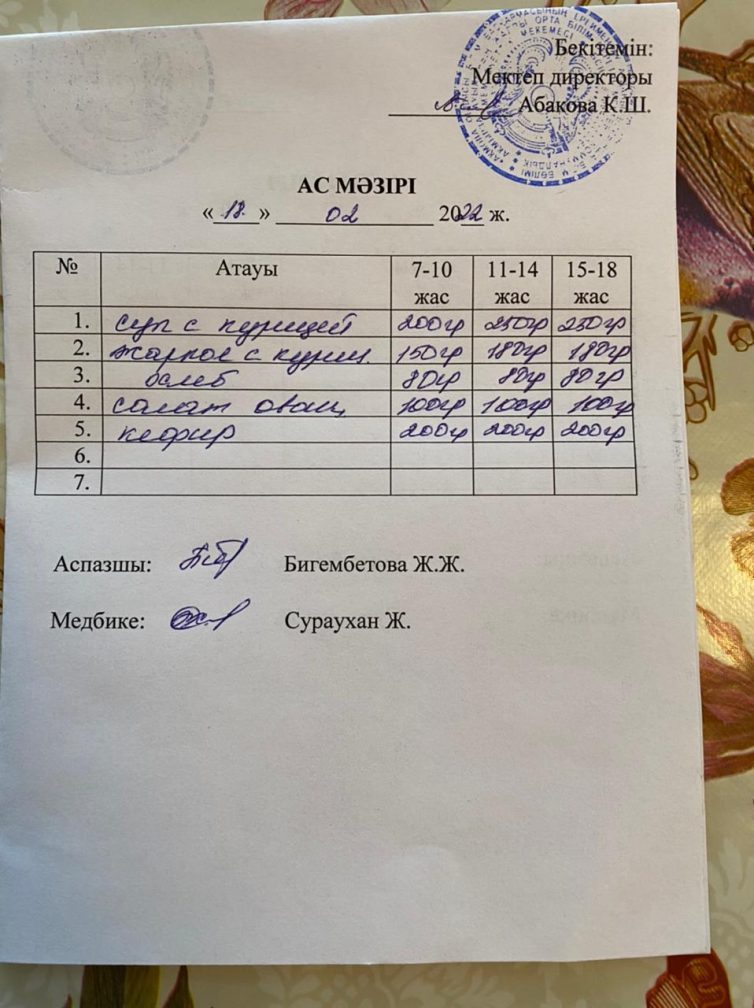 Бекітемін:
Мектеп директоры
Абакова К.Ш.
АС МӘЗІРІ
«18.» 02 2022 ж.
№ Атауы 7-10 жас 11-14 жас 15-18 жас
1. суп с курицей 200гр 250гр 250гр
2. жаркое с куриц. 150гр 180гр 180гр
3. 80гр 80гр 80гр
4. салат овощ 100гр 100гр 100гр
5. кефир 200гр 200гр 200гр
6.
7.
Аспазшы: Бигембетова Ж.Ж.
Медбике: Сураухан Ж.